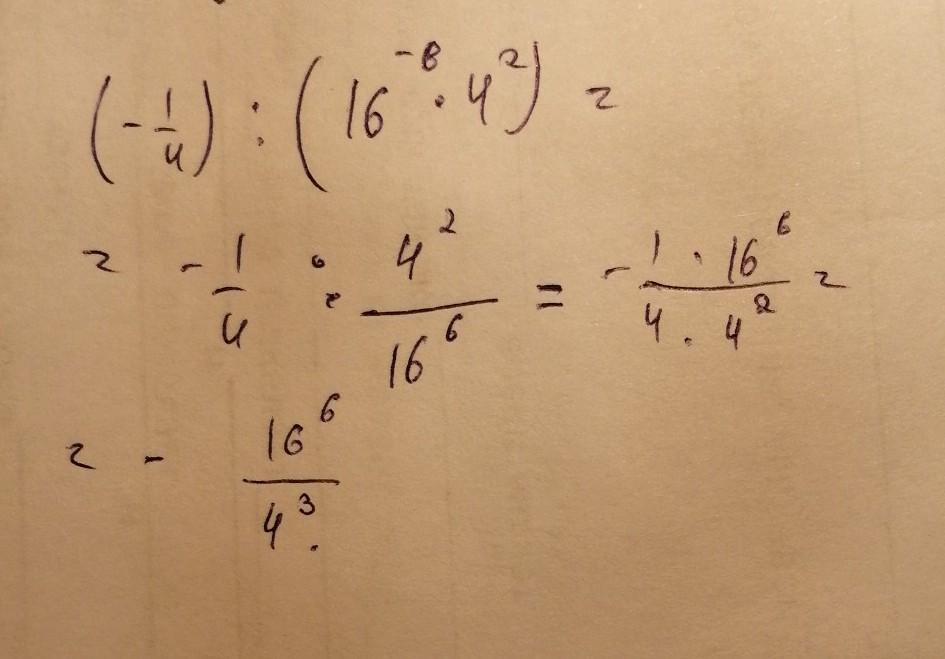 (-1/4) : (16^-6 · 4^2) =
= -1/4 : 4^2/16^6 = -(1 · 16^6)/(4 · 4^2) =
= - 16^6/4^3.